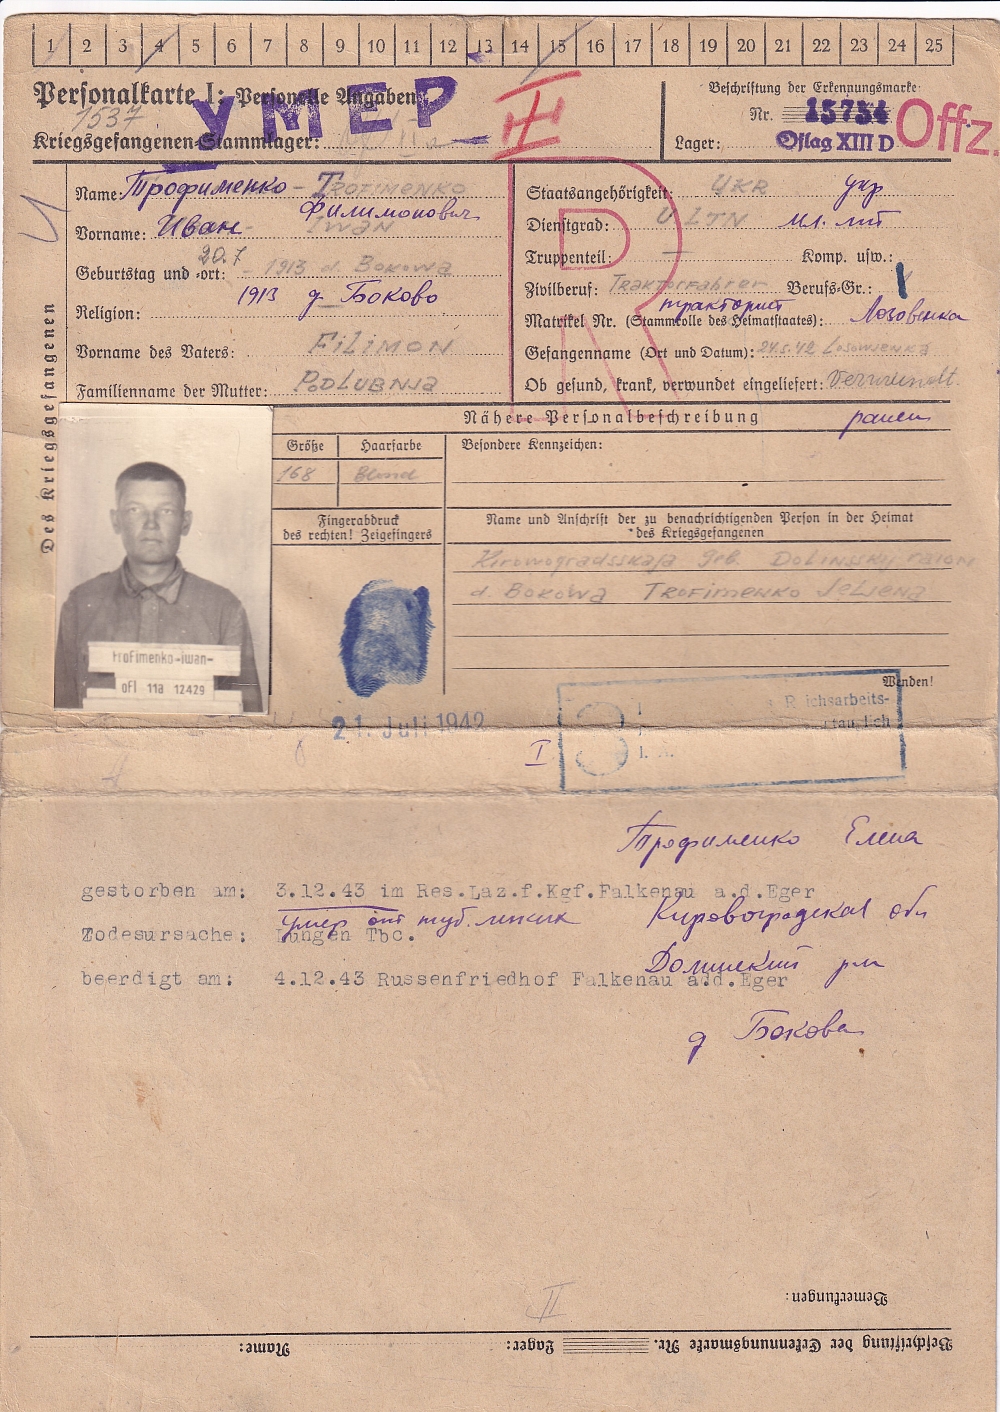 1 2 3 4 5 6 7 8 9 10 11 12 13 14 15 16 17 18 19 20 21 22 23 24 25
Personalkarte I: Personelle Angaben
1537
УМЕР
III
Kriegsgefangenen-Stammlager:
Beschriftung der Erkennungsmarke
Nr. 15754
Lager: Oflag XIII D
Offz.
Des Kriegsgefangenen
Name: Трофименко - TROFIMENKO
Филимонович
Vorname: Иван - IWAN
20.7
Geburtstag und -ort: - 1913 d. BOKOWA
1913 д Боково
Religion:
Vorname des Vaters: FILIMON
Familienname der Mutter: PODLUBNJA
Staatsangehörigkeit: UKR укр
Dienstgrad: U LTN мл. лт
Truppenteil: — Komp. usw.:
Zivilberuf: TRAKTORFAHRER Berufs-Gr.: 1
тракторист
Matrikel Nr. (Stammrolle des Heimatstaates): Лозовенка
Gefangenname (Ort und Datum): 24.5.42 LOSOWJENKA
Ob gesund, krank, verwundet eingeliefert: Verwundet.
Nähere Personalbeschreibung ранен
Größe Haarfarbe Besondere Kennzeichen:
168 Blond
Fingerabdruck
des rechten! Zeigefingers
Name und Anschrift der zu benachrichtigenden Person in der Heimat
des Kriegsgefangenen
Kirowogradsskaja geb. DOLINSSKIJ raion
d. BOKOWA TROFIMENKO JELJENA
trofimenko-iwan-
ofl 11a 12429
Wenden!
21. Juli 1942
Reichsarbeits-
I
Трофименко Елена
gestorben am: 3.12.43 im Res.Laz.f.Kgf.Falkenau a.d.Eger
умер от туб. легких Кировоградская обл
Todesursache: Lungen Tbc.
Долинский р-н
beerdigt am: 4.12.43 Russenfriedhof Falkenau a.d.Eger
д Бокова
Bemerkungen:
II
Beschriftung der Erkennungsmarke Nr. Lager: Name: